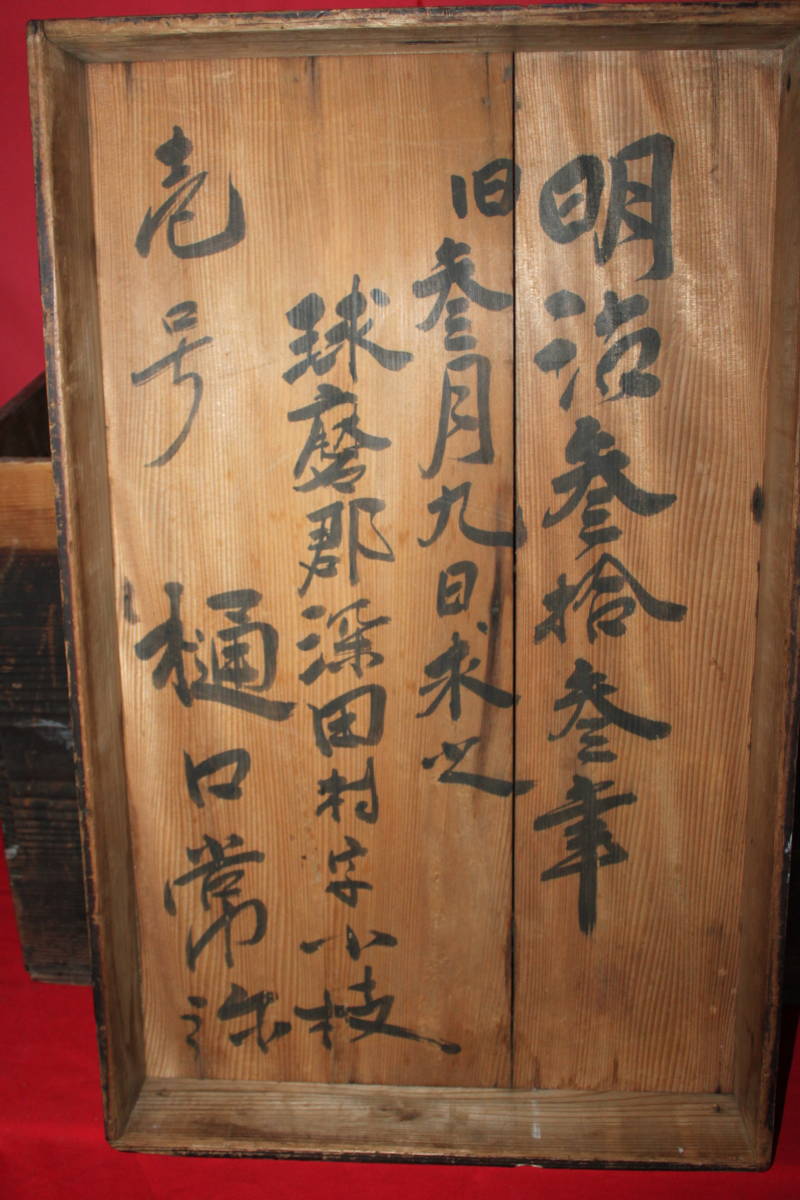 明治参拾参年
旧参月九日求之
球磨郡深田村字小枝
壱号 樋口常弥